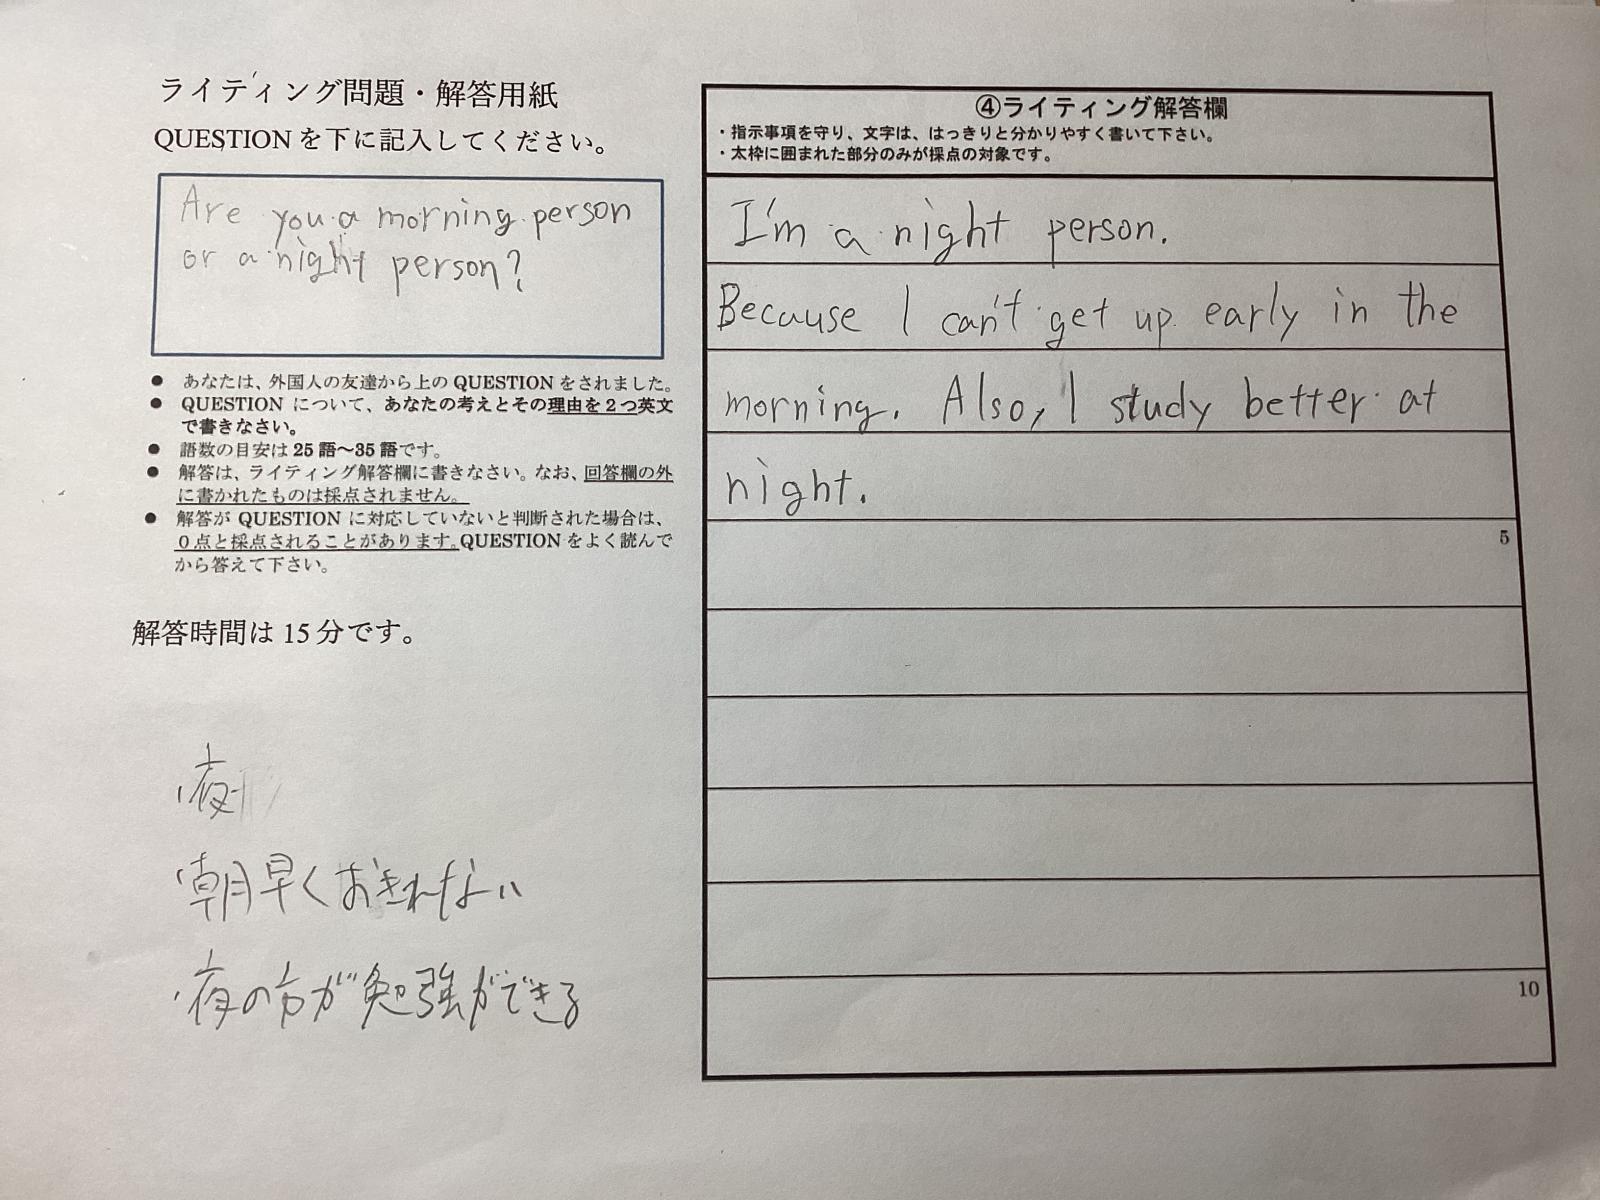 ライティング問題・解答用紙
QUESTIONを下に記入してください。
Are you a morning person
or a night person?
● あなたは、外国人の友達から上の QUESTION をされました。
● QUESTION について、あなたの考えとその理由を２つ英文
で書きなさい。
● 語数の目安は 25 語～35 語です。
● 解答は、ライティング解答欄に書きなさい。なお、回答欄の外
に書かれたものは採点されません。
● 解答が QUESTION に対応していないと判断された場合は、
０点と採点されることがあります。QUESTION をよく読んで
から答えて下さい。
解答時間は 15 分です。
・夜
・朝早くおきれない
・夜の方が勉強ができる
④ライティング解答欄
・指示事項を守り、文字は、はっきりと分かりやすく書いて下さい。
・太枠に囲まれた部分のみが採点の対象です。
I'm a night person.
Because I can't get up early in the
morning. Also, I study better at
night.
5
10